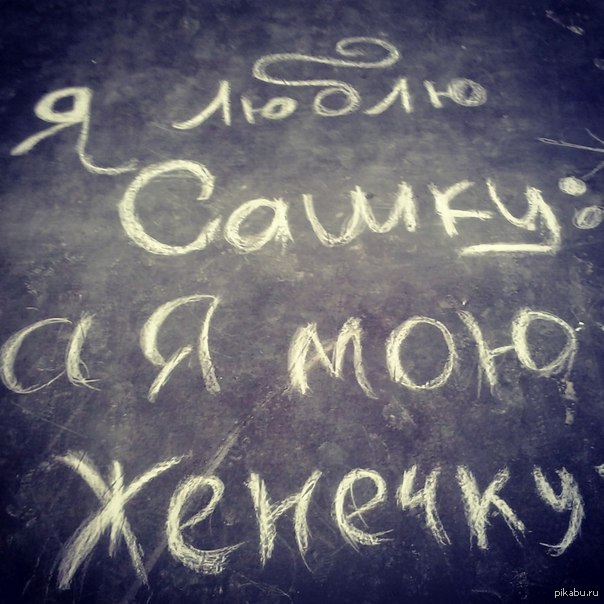 Я люблю
Сашку:
а Я мою
Женечку
pikabu.ru